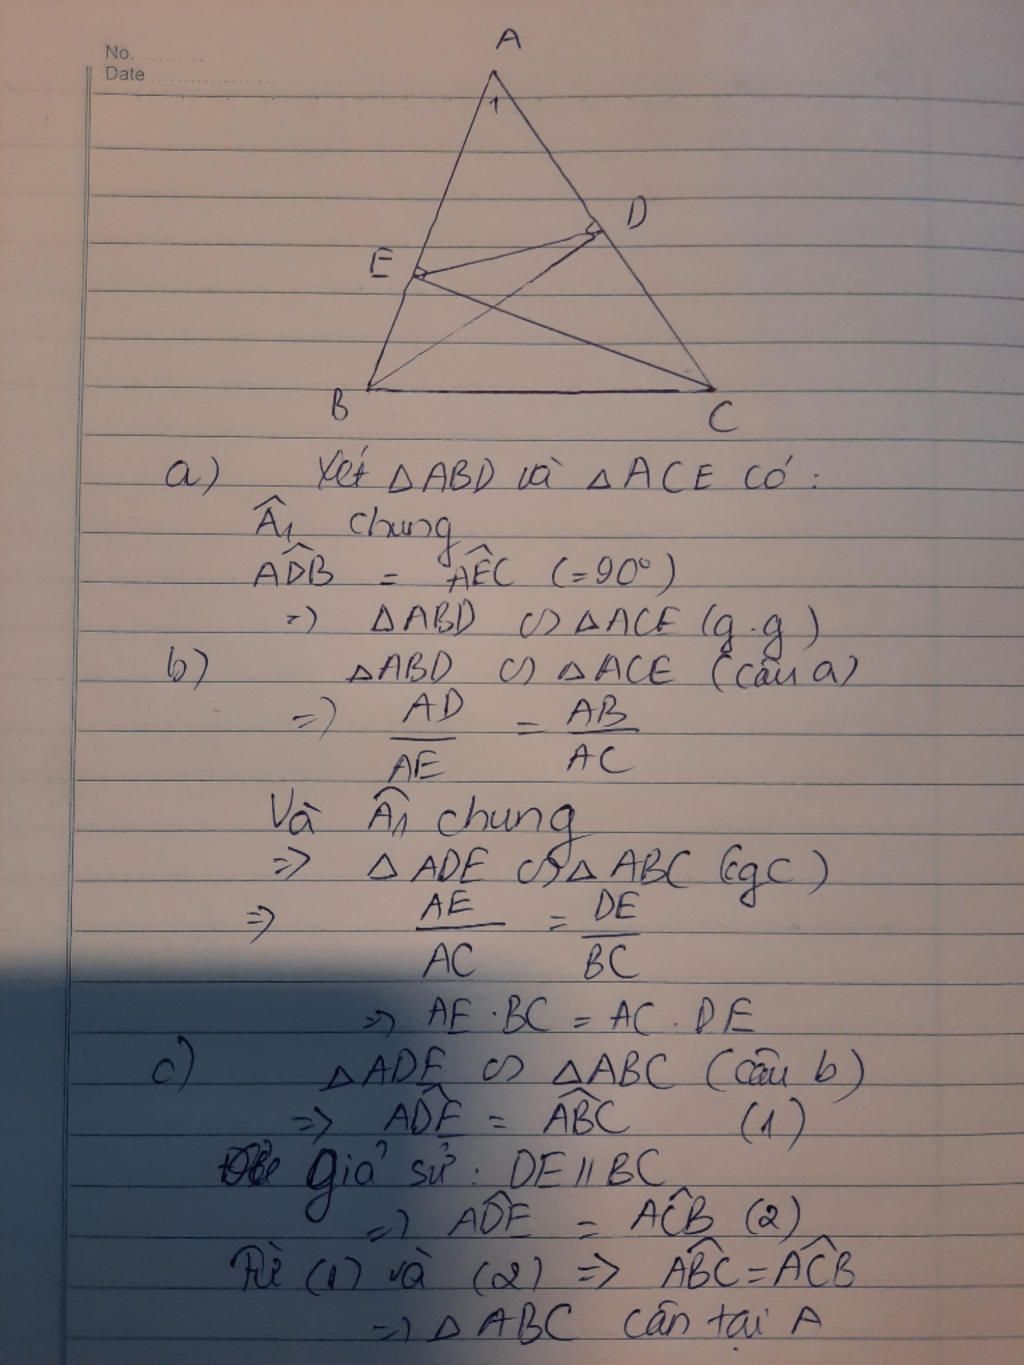 No. ..........
Date ......................
A
1
D
E
B
C
a) Xét △ABD và △ACE có:
Â₁ chung
ADB̂ = AÊC (=90°)
=> △ABD ∽ △ACE (g.g)
b) △ABD ∽ △ACE (câu a)
=> AD/AE = AB/AC
Và Â₁ chung
=> △ADE ∽ △ABC (cgc)
=> AE/AC = DE/BC
=> AE.BC = AC.DE
c) △ADE ∽ △ABC (câu b)
=> AD̂E = AB̂C (1)
giả sử: DE//BC
=> AD̂E = AĈB (2)
Từ (1) và (2) => AB̂C = AĈB
=> △ABC cân tại A